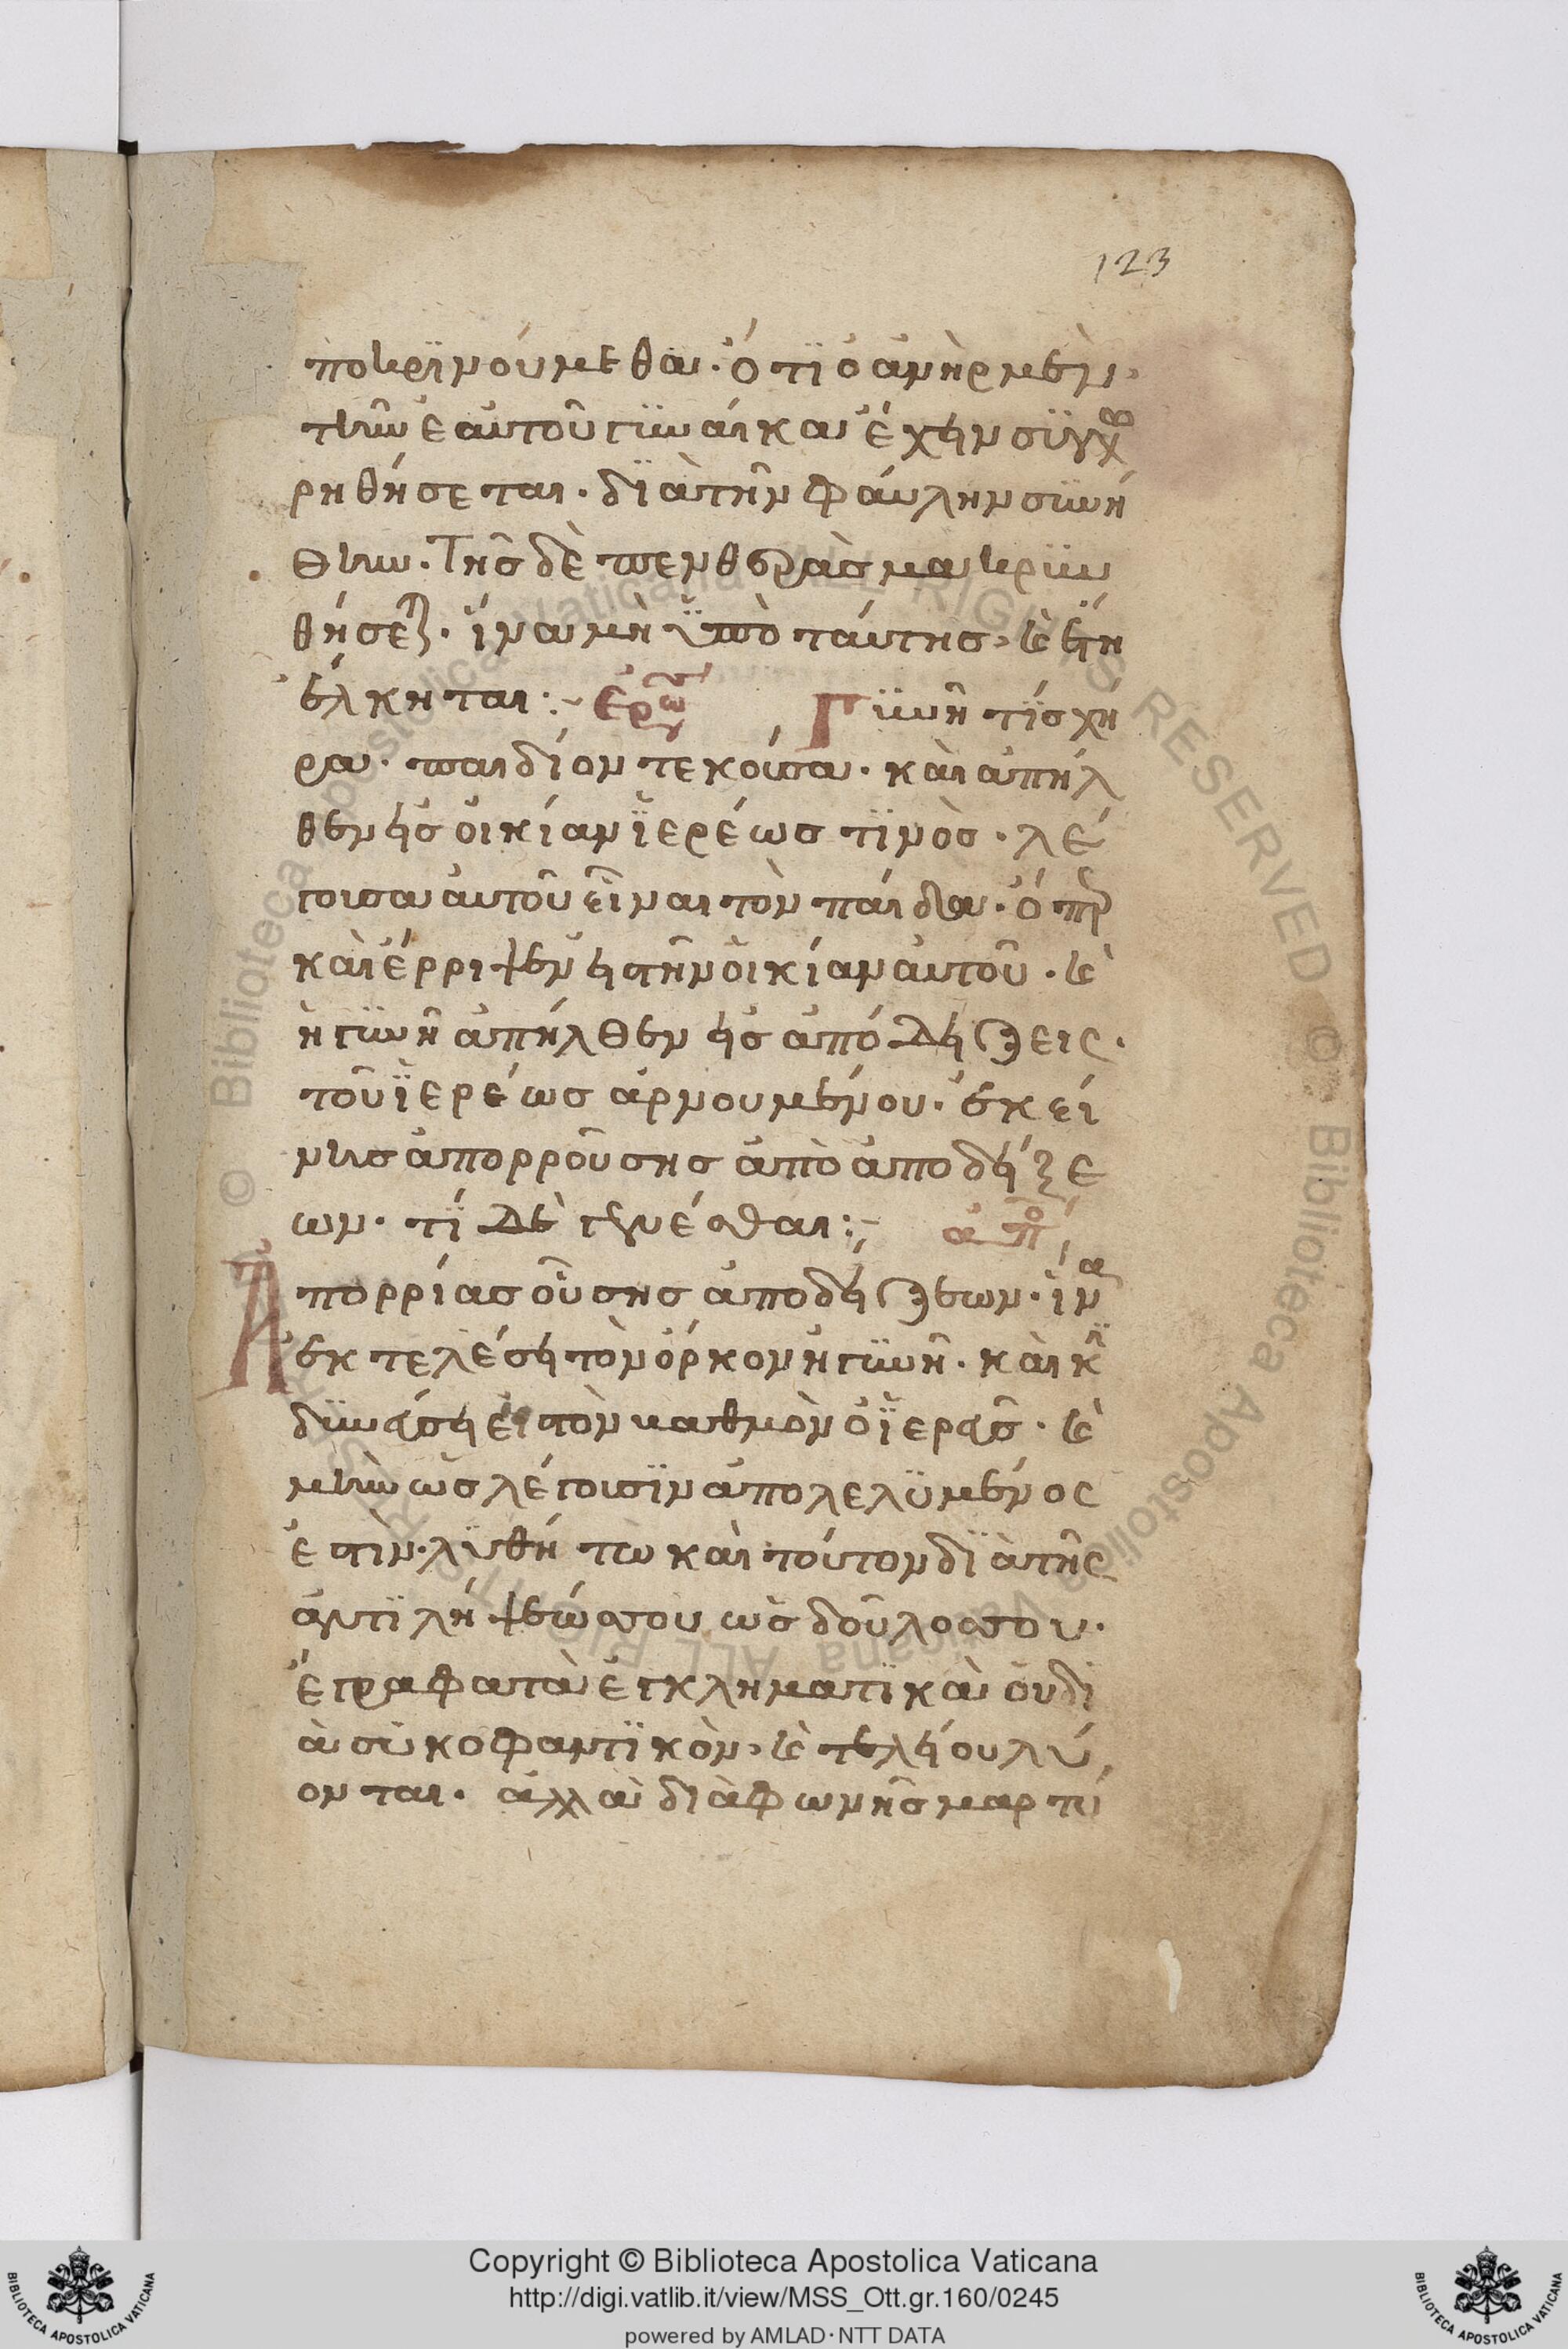 123
ποκρϊνούμεθα· ὅτϊ ὁ ἀνὴρ μὲν·
τὴν ἑαυτοῦ γϋναίκα ἔχην σϋγχω
ρηθήσεται· δϊὰ τὴν φάυλην σϋνή
θην· Τῆς δὲ πενθερᾶς μακρϋν
θήσεται· ἵνα μὴ ὑπὸ τάυτης· καὶ ἔτη
ἕλκηται:~ ἐρώτ Γϋνὴ τίς χή
ρα· παιδίον τεκούσα· καὶ ἀπήλ
θεν εἰς οἰκίαν ϊερέως τϊνὸς· λέ
γουσα αυτοῦ εἶναι τὸν παίδα· ὅπερ
καὶ ἔρριψεν εἰ τὴν οἰκίαν αυτοῦ· καὶ
ἡ γϋνὴ ἀπήλθεν εἰς ἀπόδειξεις·
τοῦ ϊερέως ἀρνουμένου· ἐκεί
νης ἀπορρούσης ἀπὸ ἀποδείξε
ων· τί δεῖ γενέσθαι:~ ἀπό
Ἀπορρίας οὔσης ἀποδείξεων· ἵνα
ἐκτελέσει τὸν ὅρκον ἡ γϋνὴ· καὶ κϊ
δϋνεύσει εἰ τὸν βαθμὸν ὁ ϊερεῦς· καὶ
μὴν ὡς λέγουσϊν ἀπολελϋμένος
ἐστὶν· λϋθή τω καὶ τούτον δϊὰ τῆς
ἀντϊλήψεώς σου ὡς δοῦλος σου·
ἔγραφα τὰ ἐγκληματϊκὰ οὐ δϊ
ὰ σϋκοφαντϊκὸν· καὶ τελείου λύ
ονται· ἀλλὰ διὰ φωνῆς μαρτύ
Copyright © Biblioteca Apostolica Vaticana
http://digi.vatlib.it/view/MSS_Ott.gr.160/0245
powered by AMLAD·NTT DATA
BIBLIOTECA APOSTOLICA VATICANA
BIBLIOTECA APOSTOLICA VATICANA
© Biblioteca Apostolica Vaticana ALL RIGHTS RESERVED